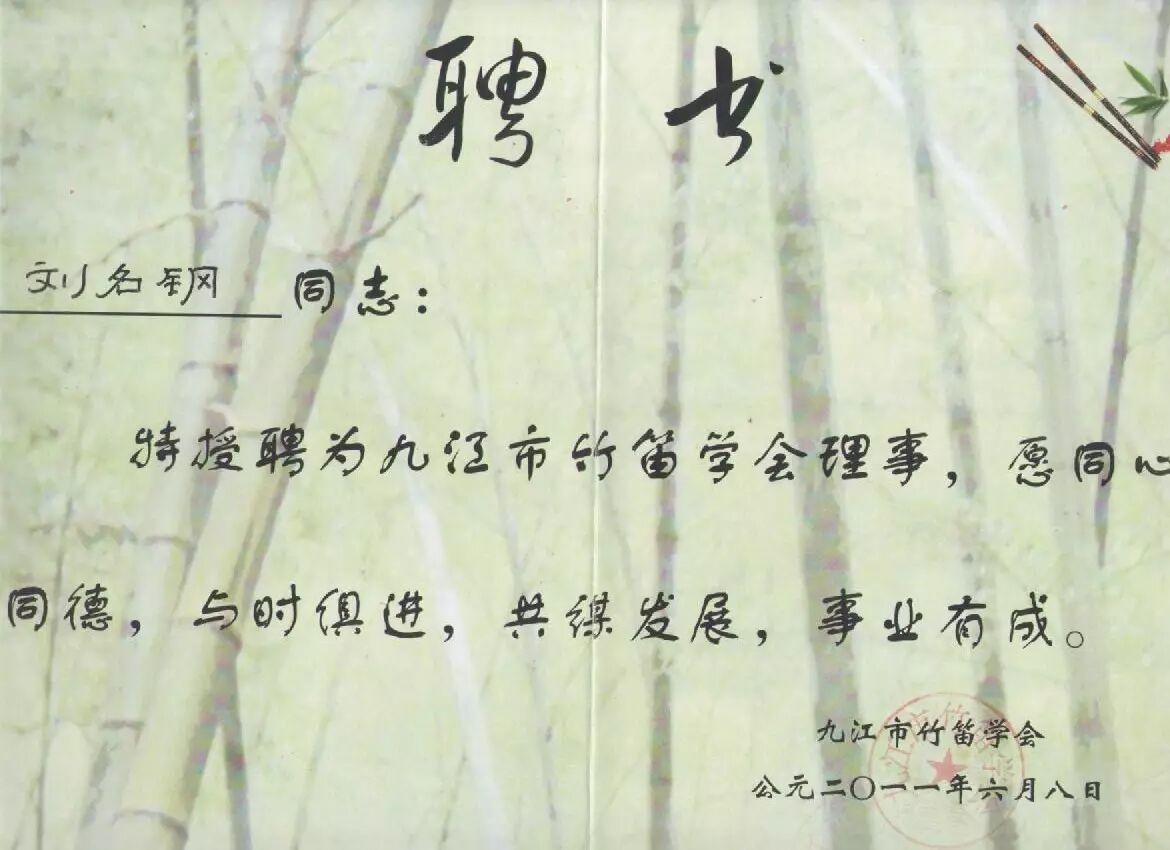 聘书
刘名钢 同志：
特授聘为九江市竹笛学会理事，愿同心
同德，与时俱进，共谋发展，事业有成。
九江市竹笛学会
公元二〇一一年六月八日